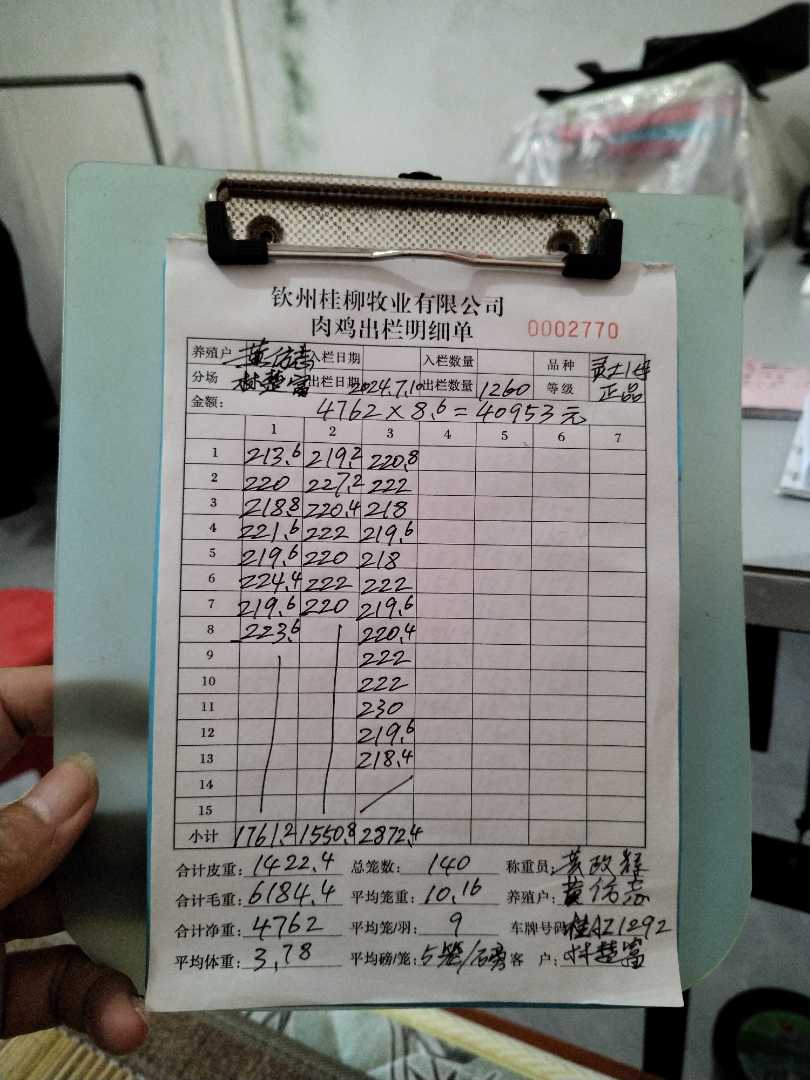 钦州桂柳牧业有限公司
肉鸡出栏明细单 0002770
养殖户 入栏日期 入栏数量 品种
分场 林楚富 出栏日期 2024.7.10 出栏数量 1260 等级 正品
金额: 4762×8.6=40953元
1 2 3 4 5 6 7
1 213.6 219.2 220.8
2 220 227.2 222
3 218.8 220.4 218
4 221.6 222 219.6
5 219.6 220 218
6 224.4 222 222
7 219.6 220 219.6
8 223.6 220.4
9 222
10 222
11 230
12 219.6
13 218.4
14
15
小计 1761.2 1550.8 2872.4
合计皮重: 1422.4 总笼数: 140 称重员: 黄政辉
合计毛重: 6184.4 平均笼重: 10.16 养殖户: 黄仿志
合计净重: 4762 平均笼/羽: 9 车牌号码: 桂AZ1292
平均体重: 3.78 平均磅/笼: 5笼/磅 客 户: 林楚富